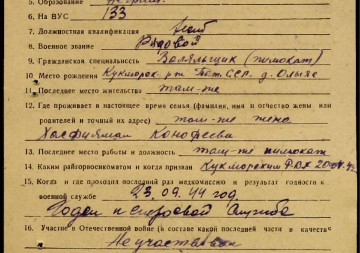 5. Образование Неграм.
6. На ВУС 133
7. Должностная квалификация
8. Военное звание Рядовой
9. Гражданская специальность Валяльщик (пимокат)
10. Место рождения Кукморск. р-н Тат. ССР. д.
11. Последнее место жительства там-же
12. Где проживает в настоящее время семья (фамилия, имя и отчество жены или
родителей и точный их адрес) там-же жена
Конофеева
13. Последнее место работы и должность там-же пимокат
14. Каким райгорвоенкоматом и когда призван Кукморским РВК
15. Когда и где проходил последний раз медкомиссию и результат годности к
военной службе 23.09.44 год.
Годен к строевой службе
16. Участие в Отечественной войне (в составе какой последней части в качестве
Не участвовал